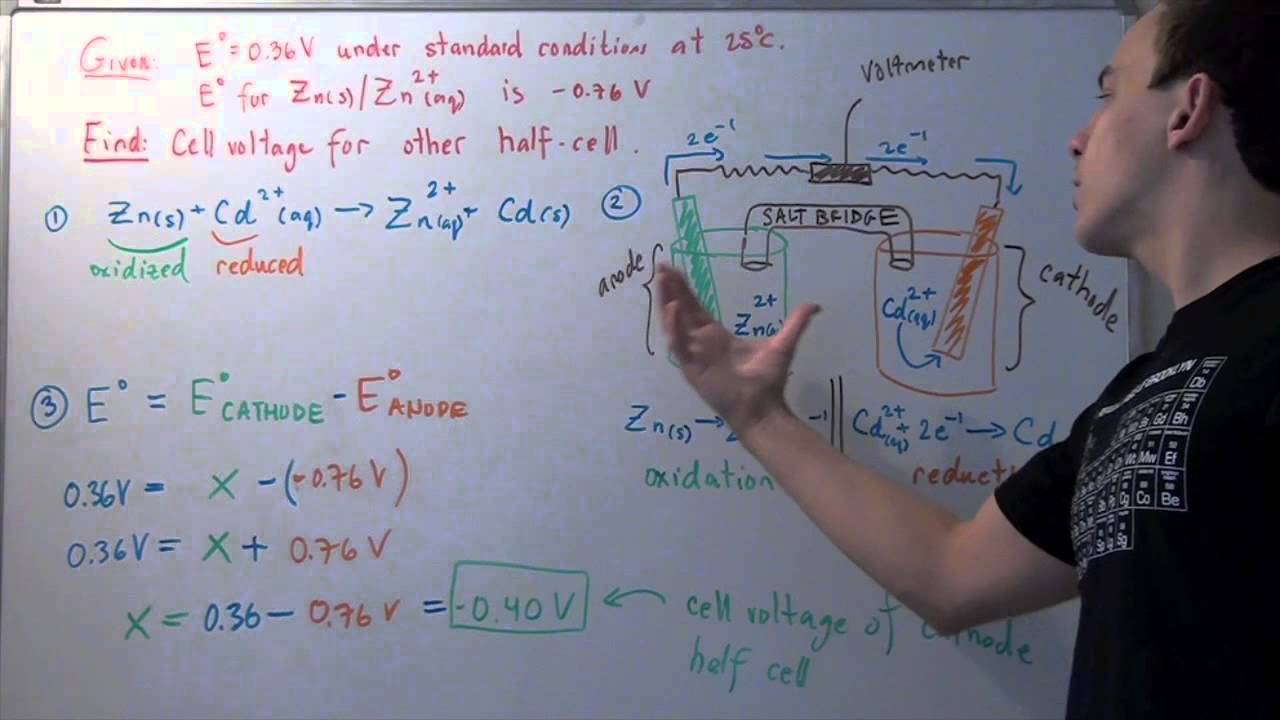 Given: E° = 0.36 V under standard conditions at 25°C.
E° for Zn(s)/Zn²⁺(aq) is -0.76 V
Find: Cell voltage for other half-cell.
① Zn(s) + Cd²⁺(aq) → Zn²⁺(aq) + Cd(s)
oxidized reduced
②
voltmeter
2e⁻¹ 2e⁻¹
SALT BRIDGE
anode
cathode
Zn²⁺
Cd²⁺(aq)
Zn(s) → ⁻¹ || Cd²⁺(aq) + 2e⁻¹ → Cd
oxidation
③ E° = E°CATHODE - E°ANODE
0.36V = X - (-0.76 V)
0.36V = X + 0.76 V
X = 0.36 - 0.76 V = -0.40 V ← cell voltage of cathode
half cell
BROOKLYN
Db
Gd Bh
Wt Mw Ef
Cg Co Be
Sg